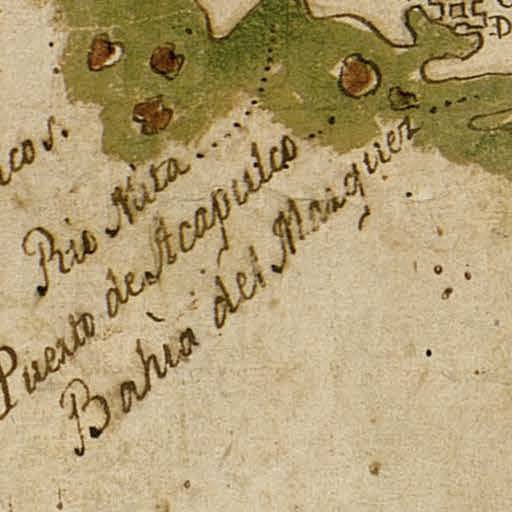 Rio Nita
Puerto de Acapulco
Bahia del Marquez